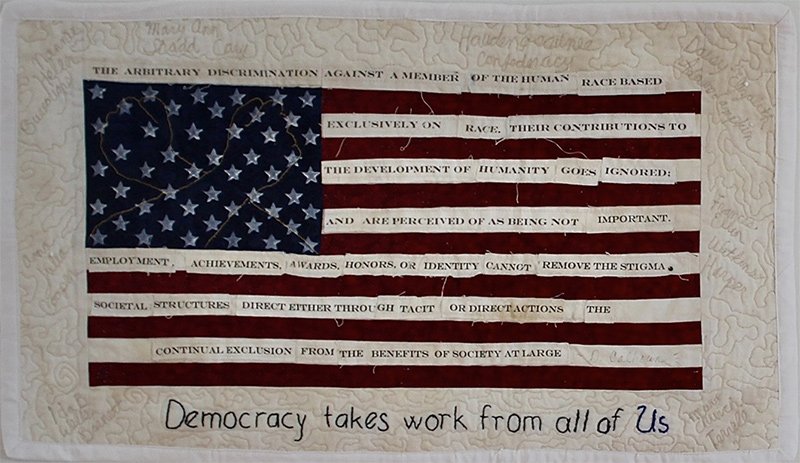 Mary Ann
Shadd Cary
Haudenosaunee
Confederacy
THE ARBITRARY DISCRIMINATION AGAINST A MEMBER OF THE HUMAN RACE BASED
EXCLUSIVELY ON RACE, THEIR CONTRIBUTIONS TO
THE DEVELOPMENT OF HUMANITY GOES IGNORED;
AND ARE PERCEIVED OF AS BEING NOT IMPORTANT.
EMPLOYMENT, ACHIEVEMENTS, AWARDS, HONORS, OR IDENTITY CANNOT REMOVE THE STIGMA.
SOCIETAL STRUCTURES DIRECT EITHER THROUGH TACIT OR DIRECT ACTIONS THE
CONTINUAL EXCLUSION FROM THE BENEFITS OF SOCIETY AT LARGE
Democracy takes work from all of Us